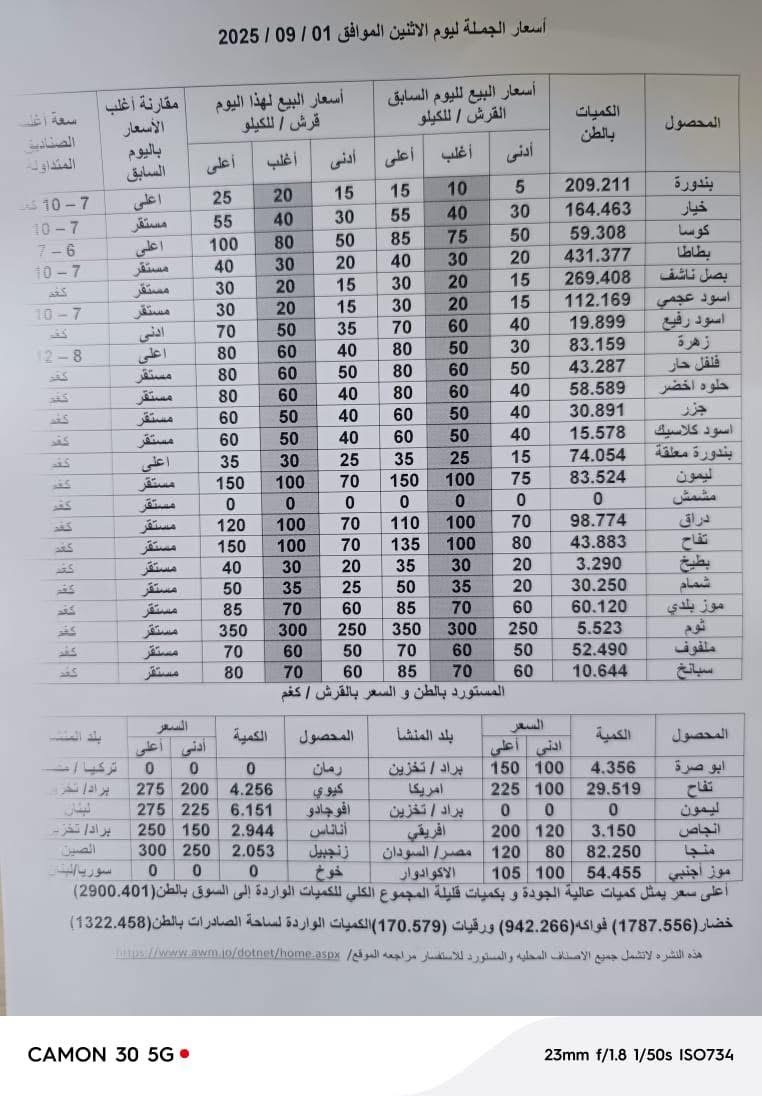 أسعار الجملة ليوم الاثنين الموافق 01 / 09 / 2025
المحصول الكميات بالطن أسعار البيع لليوم السابق القرش / للكيلو أسعار البيع لهذا اليوم قرش / للكيلو مقارنة أغلب الأسعار باليوم السابق سعة الصناديق المتداولة
أدنى أغلب أعلى أدنى أغلب أعلى
بندورة 209.211 5 10 15 15 20 25 اعلى 7 – 10
خيار 164.463 30 40 55 30 40 55 مستقر 7 – 10
كوسا 59.308 50 75 85 50 80 100 اعلى 6 – 7
بطاطا 431.377 20 30 40 20 30 40 مستقر 7 – 10
بصل ناشف 269.408 15 20 30 15 20 30 مستقر كغم
اسود عجمي 112.169 15 20 30 15 20 30 مستقر 7 – 10
اسود رفيع 19.899 40 60 70 35 50 70 ادنى كغم
زهرة 83.159 30 50 80 40 60 80 اعلى 8 – 12
فلفل حار 43.287 50 60 80 50 60 80 مستقر كغم
حلوه اخضر 58.589 40 60 80 40 60 80 مستقر كغم
جزر 30.891 40 50 60 40 50 60 مستقر كغم
اسود كلاسيك 15.578 40 50 60 40 50 60 مستقر كغم
بندورة معلقة 74.054 15 25 35 25 30 35 اعلى كغم
ليمون 83.524 75 100 150 70 100 150 مستقر كغم
مشمش 0 0 0 0 0 0 0 مستقر كغم
دراق 98.774 70 100 110 70 100 120 مستقر كغم
تفاح 43.883 80 100 135 70 100 150 مستقر كغم
بطيخ 3.290 20 30 35 20 30 40 مستقر كغم
شمام 30.250 20 35 50 25 35 50 مستقر كغم
موز بلدي 60.120 60 70 85 60 70 85 مستقر كغم
ثوم 5.523 250 300 350 250 300 350 مستقر كغم
ملفوف 52.490 50 60 70 50 60 70 مستقر كغم
سبانخ 10.644 60 70 85 60 70 80 مستقر كغم
المستورد بالطن و السعر بالقرش / كغم
المحصول الكمية السعر بلد المنشأ المحصول الكمية السعر بلد المنشأ
ادنى أعلى أدنى أعلى
ابو صرة 4.356 100 150 براد / تخزين رمان 0 0 0 تركيا /
تفاح 29.519 100 225 امريكا كيوي 4.256 200 275 براد/
ليمون 0 0 0 براد / تخزين افوجادو 6.151 225 275 لبنان
انجاص 3.150 120 200 افريقي أناناس 2.944 150 250 براد/
منجا 82.250 80 120 مصر/ السودان زنجبيل 2.053 250 300 الصين
موز أجنبي 54.455 100 105 الاكوادوار خوخ 0 0 0 سوريا/
أعلى سعر يمثل كميات عالية الجودة و بكميات قليلة المجموع الكلي للكميات الواردة إلى السوق بالطن(2900.401)
خضار(1787.556) فواكه(942.266) ورقيات (170.579)الكميات الواردة لساحة الصادرات بالطن(1322.458)
هذه النشره لاتشمل جميع الاصناف المحليه والمستورد للاستفسار مراجعه الموقع/ https://www.awm.jo/dotnet/home.aspx
CAMON 30 5G 23mm f/1.8 1/50s ISO734